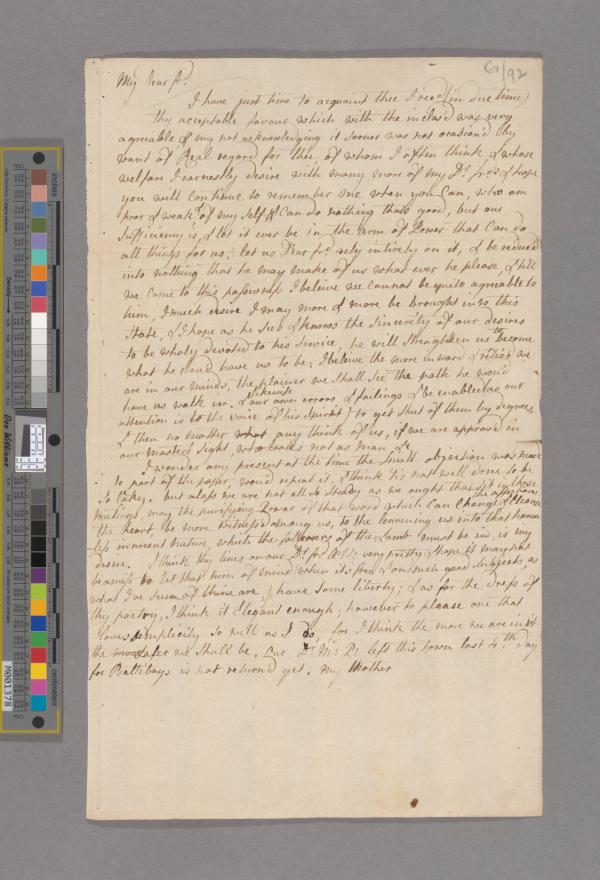 G/92
My Dear fr.d
I have just time to acquaint thee I rec.d (in due time)
thy acceptable favour which with the inclos'd was very
agreeable & my not acknowledging it sooner was not ocasion'd by
want of Real regard for thee, of whom I often think & whose
welfare I earnestly desire with many more of my D.r fr.ds & hope
you will continue to remember me when you Can, who am
poor & weak & of my Self Can do nothing thats good, but our
Sufficiency is, & let it ever be in the arm of Power that Can do
all things for us; let us Dear fr.d rely intirely on it, & be reduced
into nothing that he may make of us what ever he please, & till
we Come to this pass I beleive we cannot be quite agreeable to
him, I much desire I may more & more be brought into this
State, & I hope as he Sees & knows the Sincerity of our desires
to be wholy devoted to his Service, he will Strengthen us to become
what he wou'd have us to be; I beleive the more inward & we
are in our minds, the plainer we Shall See the path he wou'd
have us walk in. & likewise our own errors & failings & be enabled as our
attention is to the voice of his Spirit) to get Shut of them by degrees,
& then no matter what any think of us, if we are approv'd in
our master's Sight, who looks not as man, &c
I wonder any present at the time the Small objection was made
to part of the paper, wou'd repeat it, & think 'tis not well done to be
So but alass we are not all So Steady as we ought that Sit in those
meetings, may the purifying Power of that word which Can Change the affections & Cleanse
the heart, be more Witness'd among us, to the leavening us into that harm
less innocent nature, which the followers of the Lamb must be in, is my
desire. I think thy lines on our D.r fr.d very pretty & hope
to let that turn of mind (when its fixed on such good Subjects, as
what I've Seen of thine are,) have Some liberty; & as for the dress of
thy poetry, I think it Elegant enough, however to please one that
loves Simplicity So well as I do, for I think the more we are in it
the safer we Shall be. Left this town last 4.th day
for Baltiboys is not return'd yet. my Mother